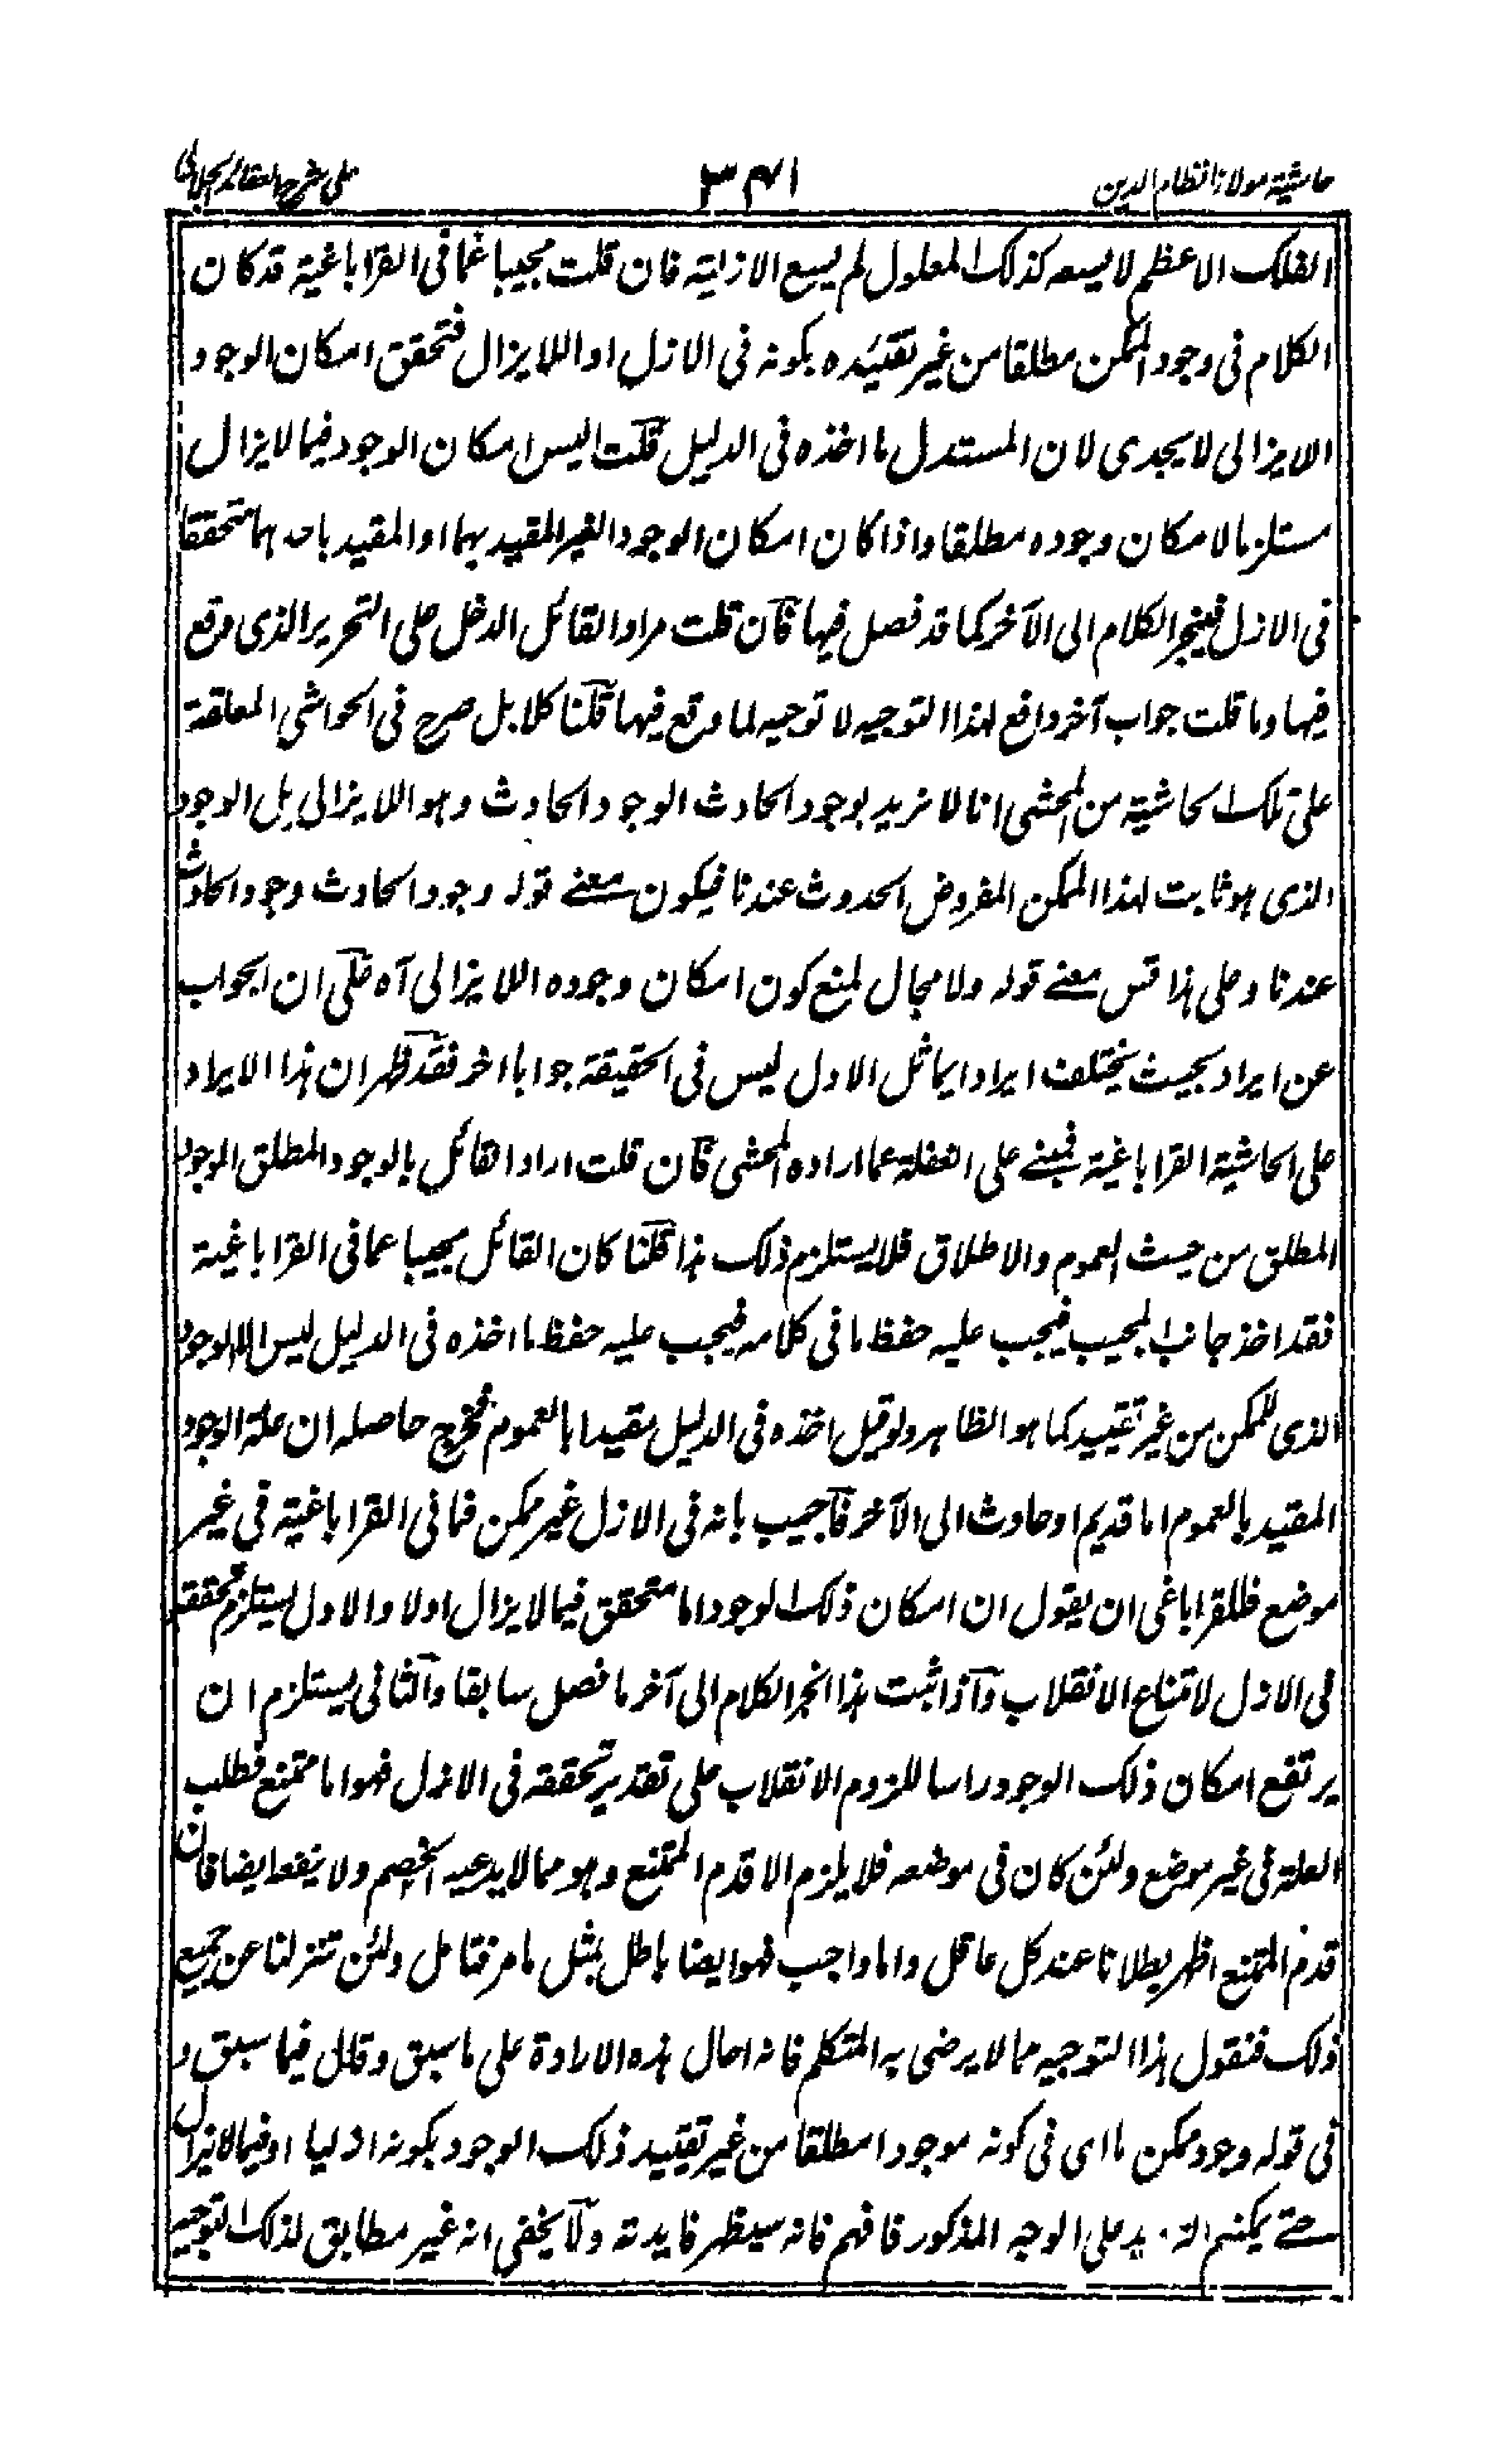 حاشية مولانا نظام الدين
٣٤١
على شرح العقائد الجلالى
الفلك الاعظم لا يسعه كذلك المعلول لم يسع الازلية فان قلت مجيبا عما فى القراباغية قد كان
الكلام فى وجود الممكن مطلقا من غير تقييده بكونه فى الازل او اللايزال فتحقق امكان الوجود
الايزالى لا يجدى لان المستدل ما اخذه فى الدليل قلت اليس امكان الوجود فيما لا يزال
مستلزما لامكان وجوده مطلقا واذا كان امكان الوجود الغير المقيد بهما او المقيد باحدهما متحققا
فى الازل فينجر الكلام الى الآخر كما قد فصل فيها فان قلت مراد القائل الدخل على التحرير الذى وقع
فيها وما قلت جواب آخر دافع لهذا التوجيه لا توجيه لما وقع فيها قلنا كلا بل صرح فى الحواشى المعلقة
على تلك الحاشية من المحشى انا لا نريد بوجود الحادث الوجود الحادث وهو اللايزالى بل الوجود
الذى هو ثابت لهذا الممكن المفروض الحدوث عندنا فيكون معنے قوله وجود الحادث وجود الحادث
عندنا وعلى هذا قس معنے قوله ولا مجال لمنع كون امكان وجوده اللايزالى آه على ان الجواب
عن ايراد بحيث يختلف ايرادا يماثل الاول ليس فى الحقيقة جوابا اخر فقد ظهر ان هذا الايراد
على الحاشية القراباغية فمبنے على الغفلة عما اراده المحشى فان قلت اراد القائل بالوجود المطلق الوجود
المطلق من حيث العموم والاطلاق فلا يستلزم ذلك هذا قلنا كان القائل مجيبا عما فى القراباغية
فقد اخذ جانب المجيب فيجب عليه حفظ ما فى كلامه فيجب عليه حفظ ما اخذه فى الدليل ليس الا الوجود
الذى للممكن من غير تقييد كما هو الظاهر ولو قيل اخذه فى الدليل مقيدا بالعموم فخرج حاصله ان علة الوجود
المقيد بالعموم اما قديم او حادث الى الآخر فاجيب بانه فى الازل غير ممكن فما فى القراباغية فى غير
موضع فللقراباغى ان يقول ان امكان ذلك الوجود اما متحقق فيما لا يزال اولا والاول يستلزم تحققه
فى الازل لامتناع الانقلاب واذا ثبت هذا انجر الكلام الى آخر ما فصل سابقا والثانى يستلزم ان
يرتفع امكان ذلك الوجود راسا للزوم الانقلاب على تقدير تحققه فى الازل فهو اما ممتنع فطلب
العلة فى غير موضع ولئن كان فى موضعه فلا يلزم الا قدم الممتنع وهو مما لا يدعيه الخصم ولا ينفعه ايضا فان
قدم الممتنع اظهر بطلانا عند كل عاقل واما واجب فهو ايضا باطل بمثل ما مر فتامل ولئن تنزلنا عن جميع
ذلك فنقول هذا التوجيه مما لا يرضى به المتكلم فانه احال هذه الارادة على ما سبق وقال فيما سبق و
فى قوله وجود ممكن ما اى فى كونه موجودا مطلقا من غير تقييد ذلك الوجود بكونه ازليا او فيما لا يزال
حتے يمكنهم على الوجه المذكور فافهم فانه سيظهر فايدته ولا يخفى انه غير مطابق لذلك التوجيه